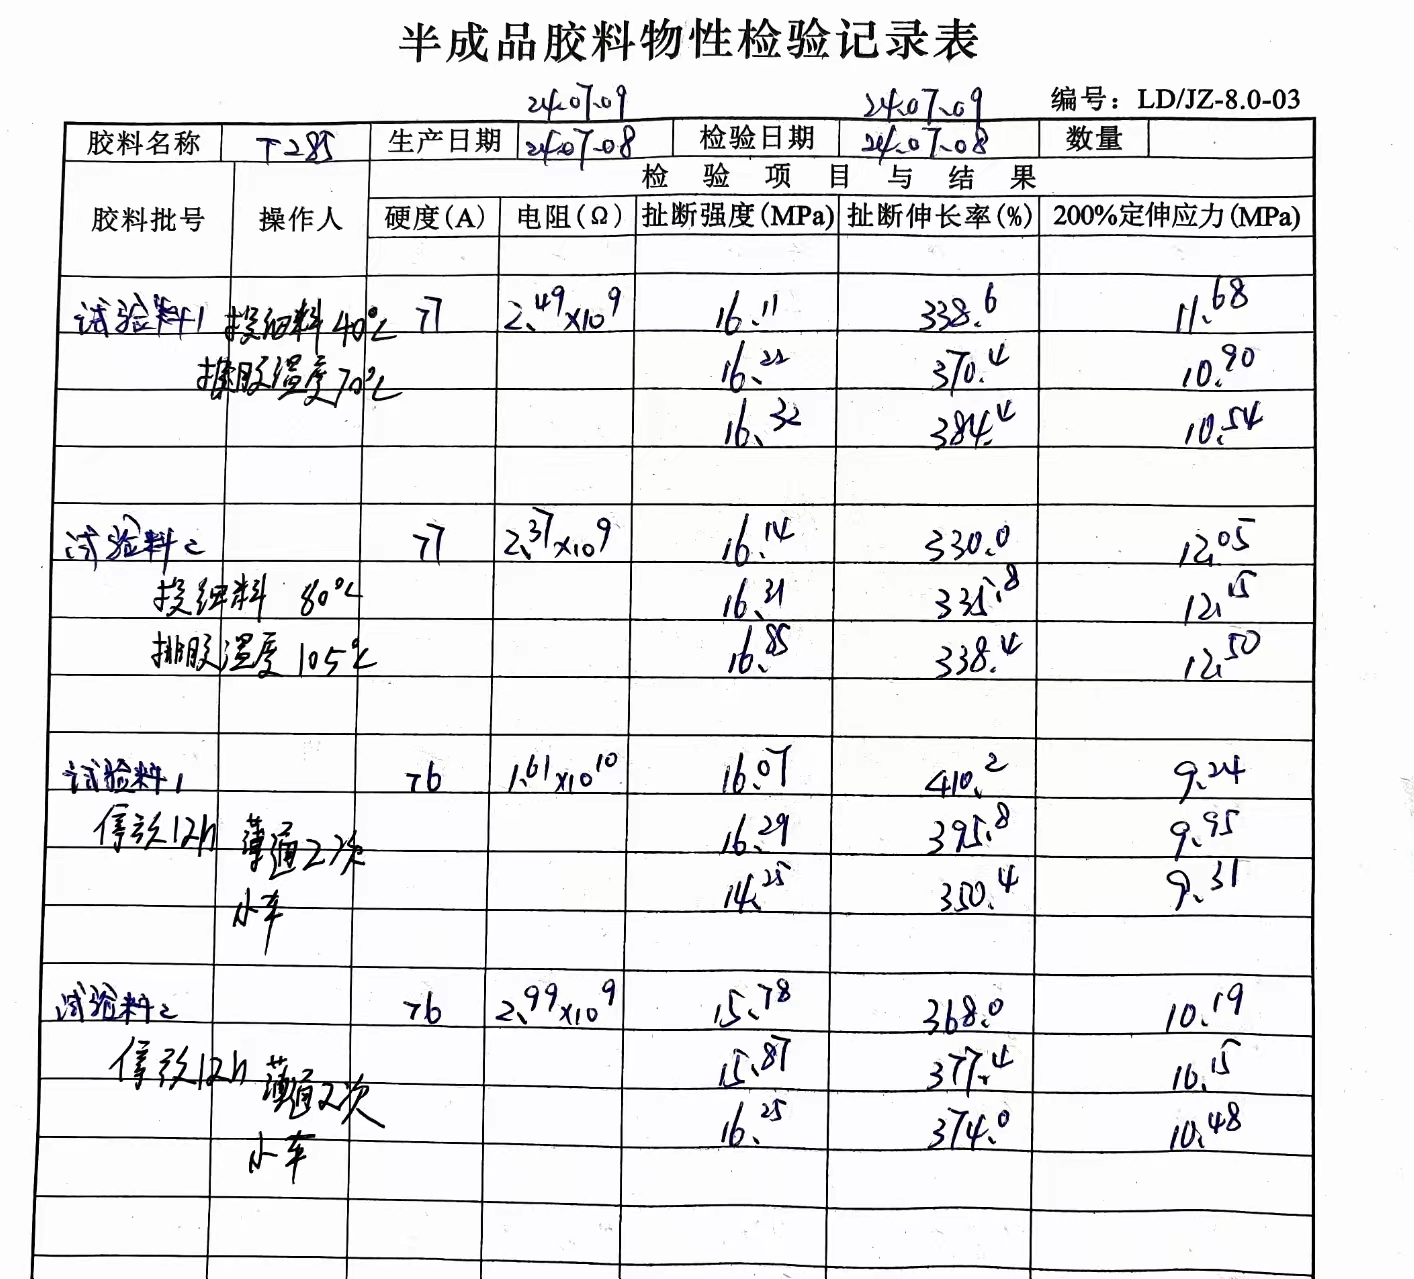 半成品胶料物性检验记录表
24.07.09 24.07.09 编号：LD/JZ-8.0-03
胶料名称 T285 生产日期 24.07.08 检验日期 24.07.08 数量
胶料批号 操作人 检验项目与结果
硬度(A) 电阻(Ω) 扯断强度(MPa) 扯断伸长率(%) 200%定伸应力(MPa)
试验料1 投细料40℃ 77 2.49×10⁹ 16.11 338.6 11.68
排胶温度70℃ 16.22 370.4 10.90
16.32 384.4 10.54
试验料2 77 2.37×10⁹ 16.14 330.0 12.05
投细料 80℃ 16.31 335.8 12.15
排胶温度105℃ 16.85 338.4 12.50
试验料1 76 1.61×10¹⁰ 16.07 410.2 9.24
停放12h 薄通2次 16.29 395.8 9.95
小车 14.25 350.4 9.31
试验料2 76 2.99×10⁹ 15.78 368.0 10.19
停放12h 薄通2次 15.87 377.4 10.15
小车 16.25 374.0 10.48